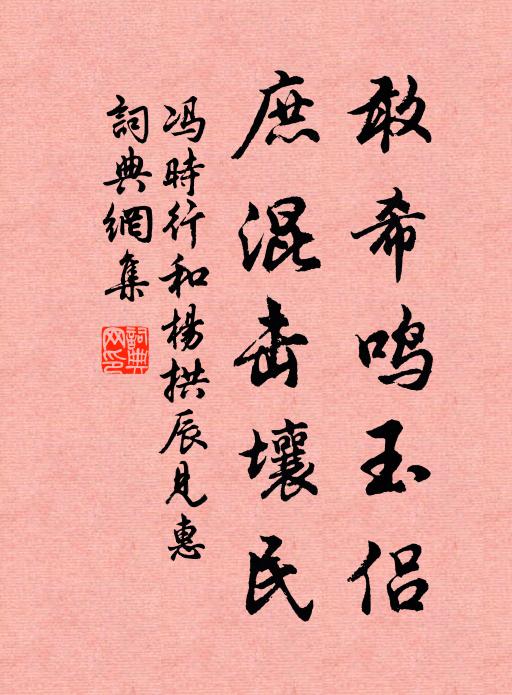 敢希鸣玉侣
庶混击壤民
冯時行和楊拱辰見惠
詞典網集
詞典網印